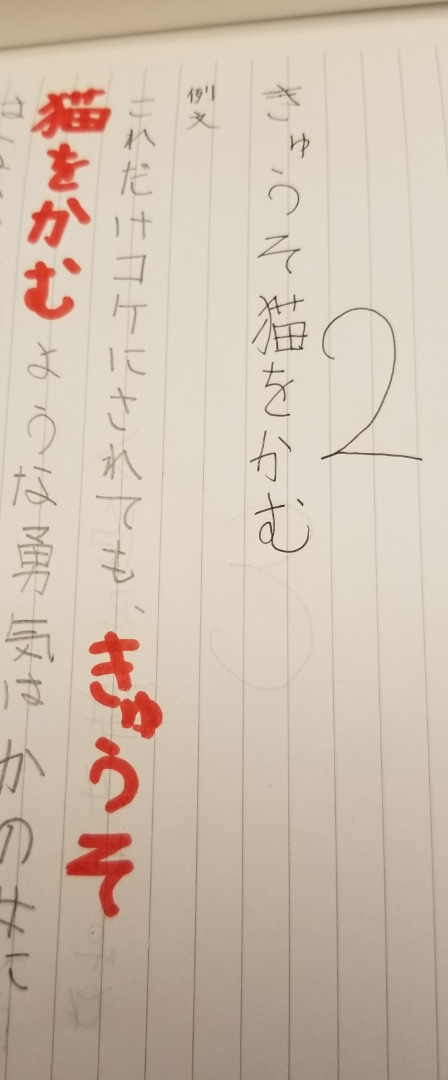 2
きゅうそ猫をかむ
例文
これだけコケにされても、きゅうそ
猫をかむような勇気はかの女に